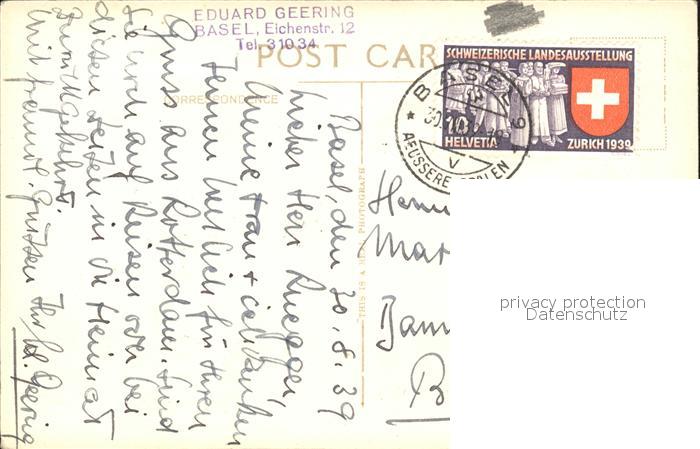 EDUARD GEERING
BASEL, Eichenstr. 12
Tel. 31034
POST CAR
CORRESPONDENCE
THIS IS A REAL PHOTOGRAPH
SCHWEIZERISCHE LANDESAUSSTELLUNG
HELVETIA
ZÜRICH 1939
BASEL 9
AEUSSERE SPALEN
V
Basel, den 30.8.39
Lieber Herr Ruegger,
Meine Frau + ich danken
Ihnen herzlich für Ihren
Gruss aus Rotterdam. Sind
Sie noch auf Reisen oder bei
diesen Zeiten in die Heimat
zurückgekehrt.
Mit freundl. Grüssen Ihr Ed. Geering
Herrn
Mar
Ban
B
privacy protection
Datenschutz